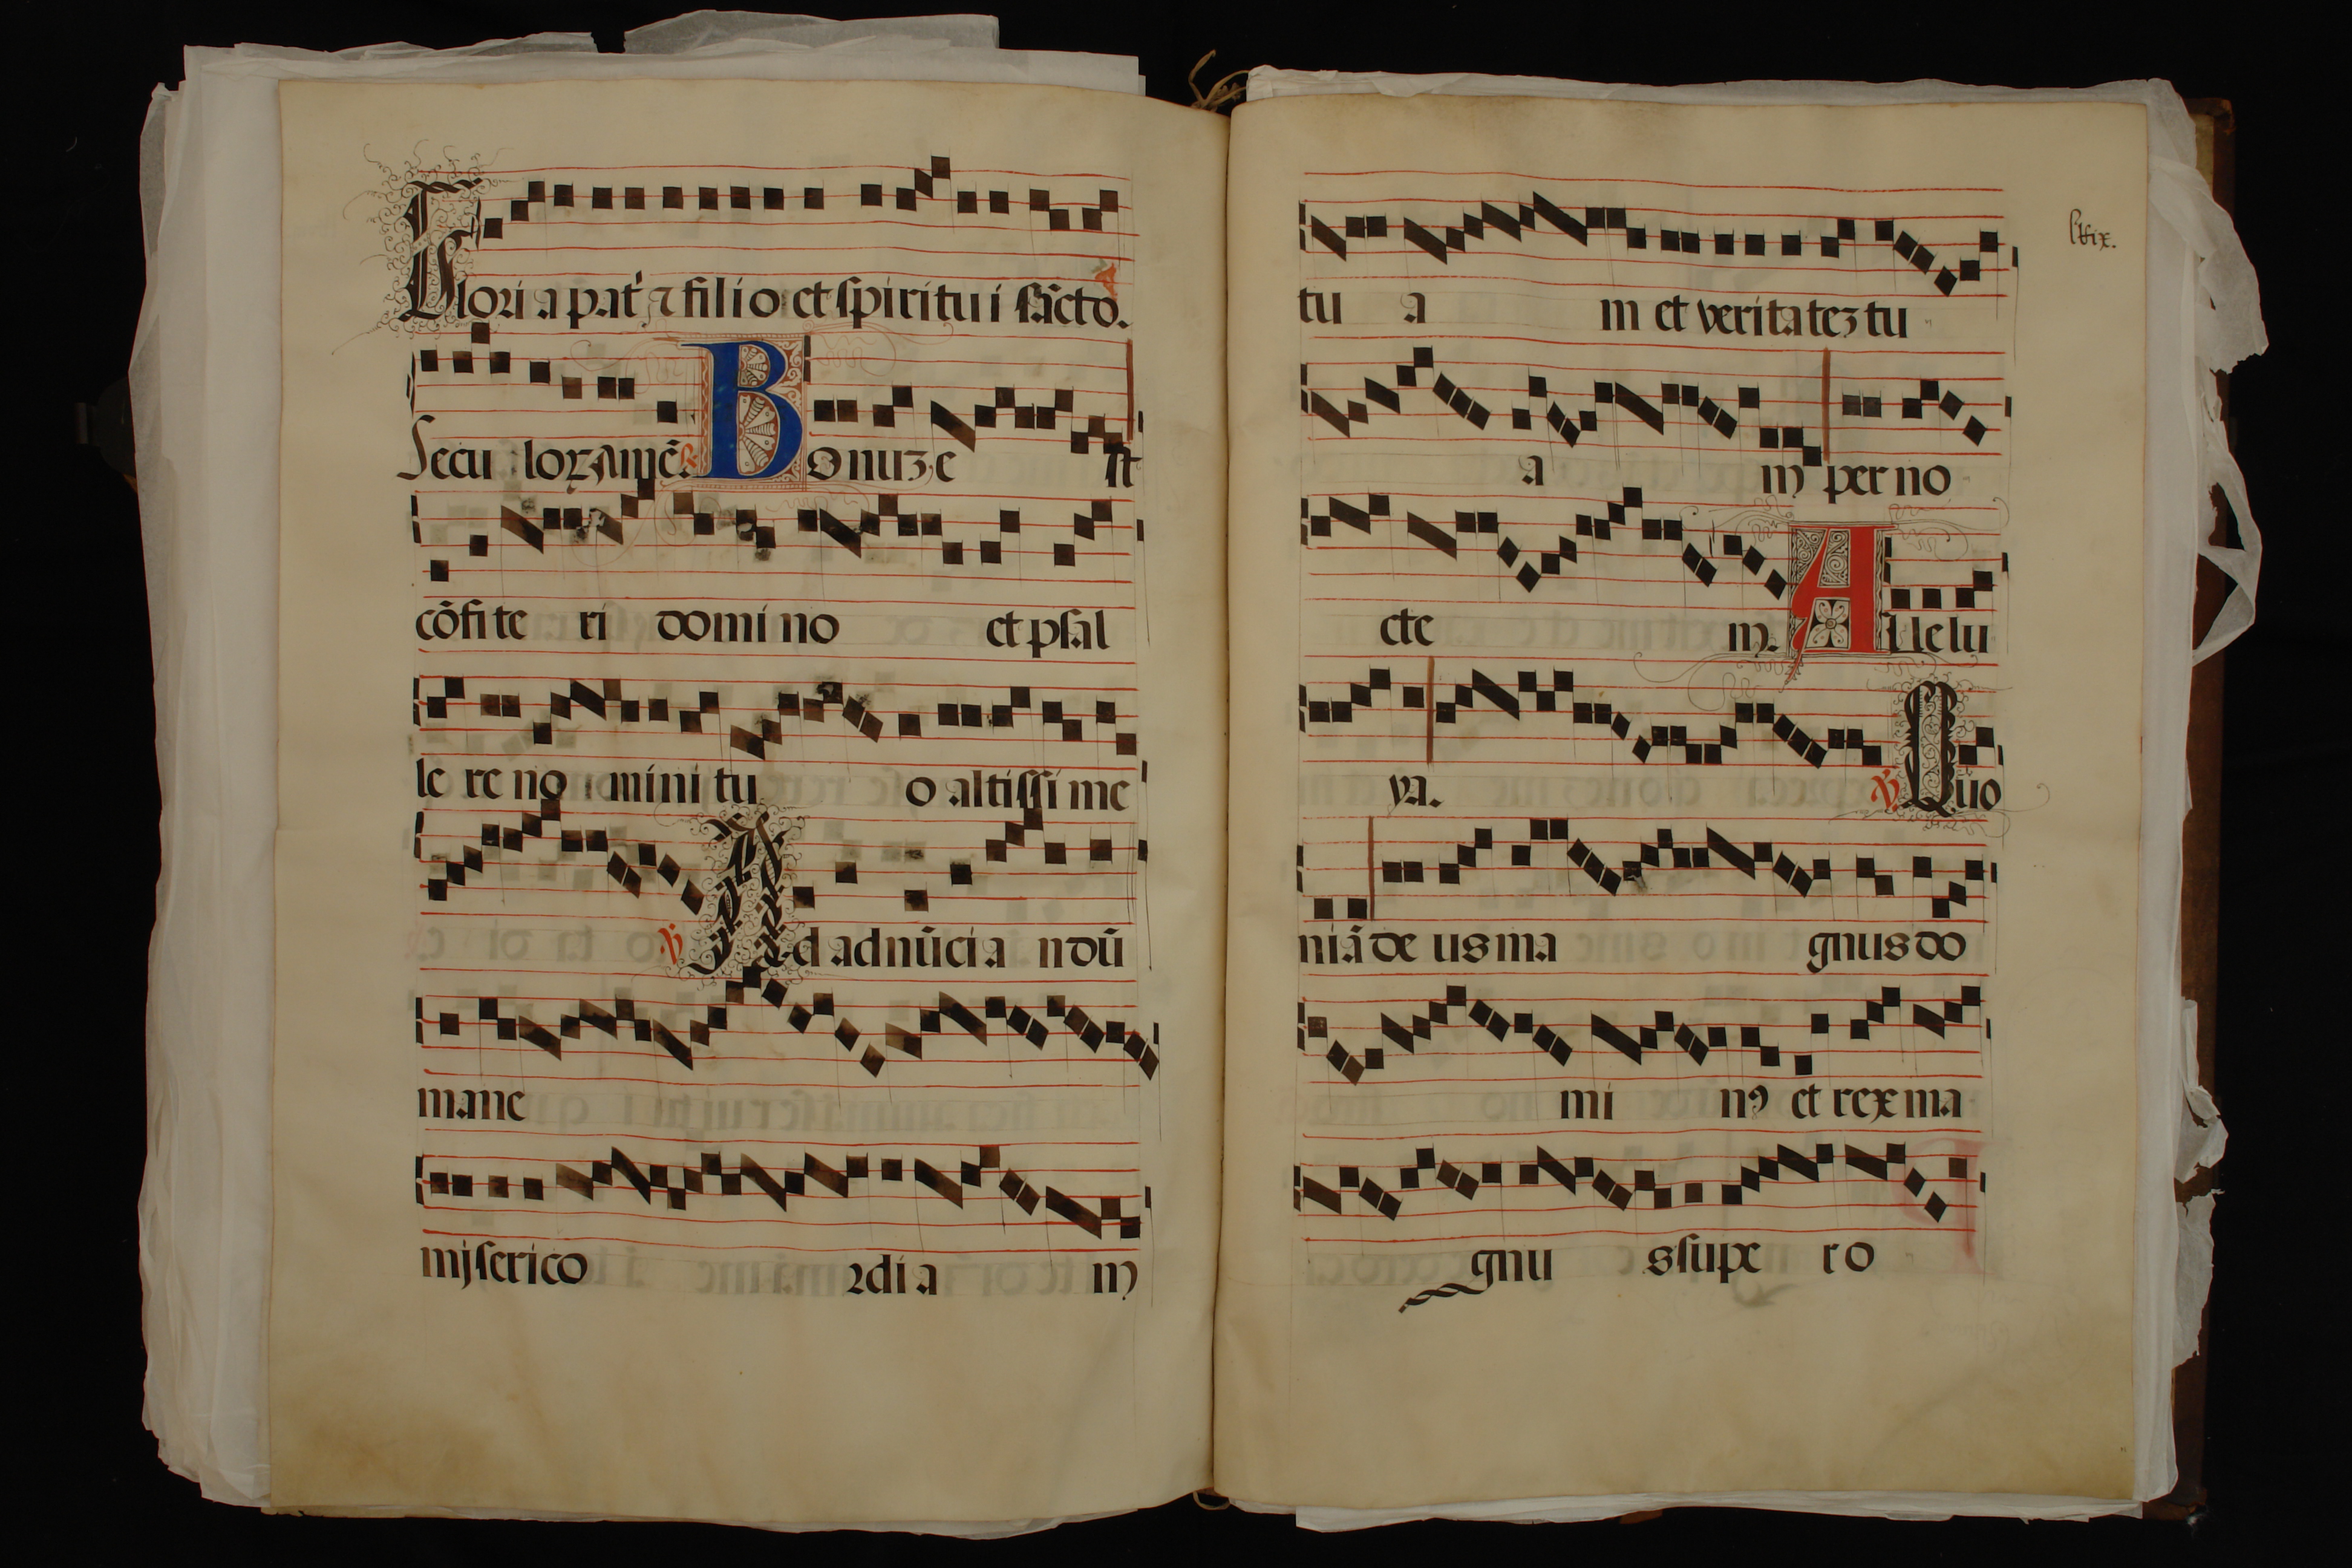 Gloria pat᷑ ⁊ filio et spiritui sācto.
Seculoꝝ amē. ℟ Bonuz est
cōfiteri domino et psal
lere nomini tuo altissime
℣ Ad adnūciandū
mane
misericordiam
tuam et veritatez tu
am per no
ctem. Allelu
ya. ℣ Quo
niā deus magnus do
minꝰ et rex ma
gnus supe ro